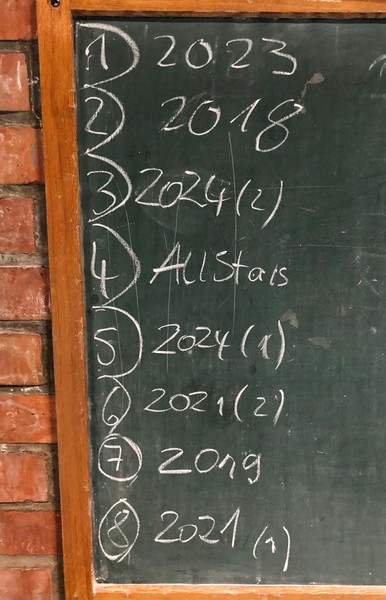 1) 2023
2) 2018
3) 2024 (2)
4) AllStars
5) 2024 (1)
6) 2021 (2)
7) 2019
8) 2021 (1)